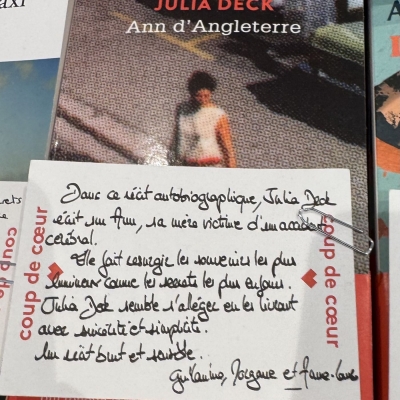 JULIA DECK
Ann d'Angleterre
Dans ce récit autobiographique, Julia Deck
écrit sur Ann, sa mère victime d'un accident
cérébral.
Elle fait resurgir les souvenirs les plus
lumineux comme les secrets les plus enfouis.
Julia Deck semble s'alléger en les livrant
avec sincérité et simplicité.
Un récit brut et sensible.
Guillemine, Morgane et Anne-Laure
coup de cœur
coup de cœur